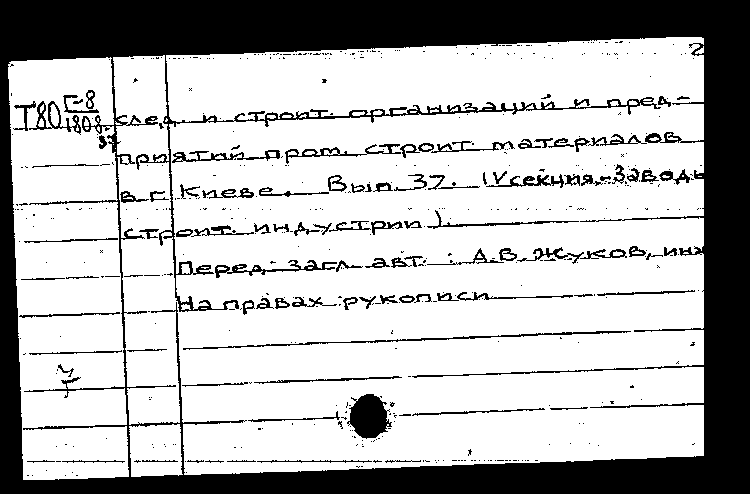 2
Т80 Г-8 след. и строит. организаций и пред-
1808 приятий пром. строит. материалов
37
в г. Киеве. Вып. 37. (V секция.-Заводы
строит. индустрии).
Перед. загл. авт.: А.В. Жуков, инж
На правах рукописи